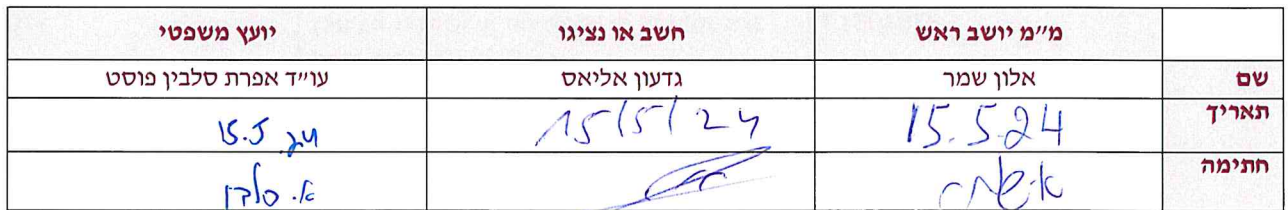 מ״מ יושב ראש חשב או נציגו יועץ משפטי
שם אלון שמר גדעון אליאס עו״ד אפרת סלבין פוסט
תאריך 15.5.24 15/5/24 15.5.24
חתימה א. סלבין